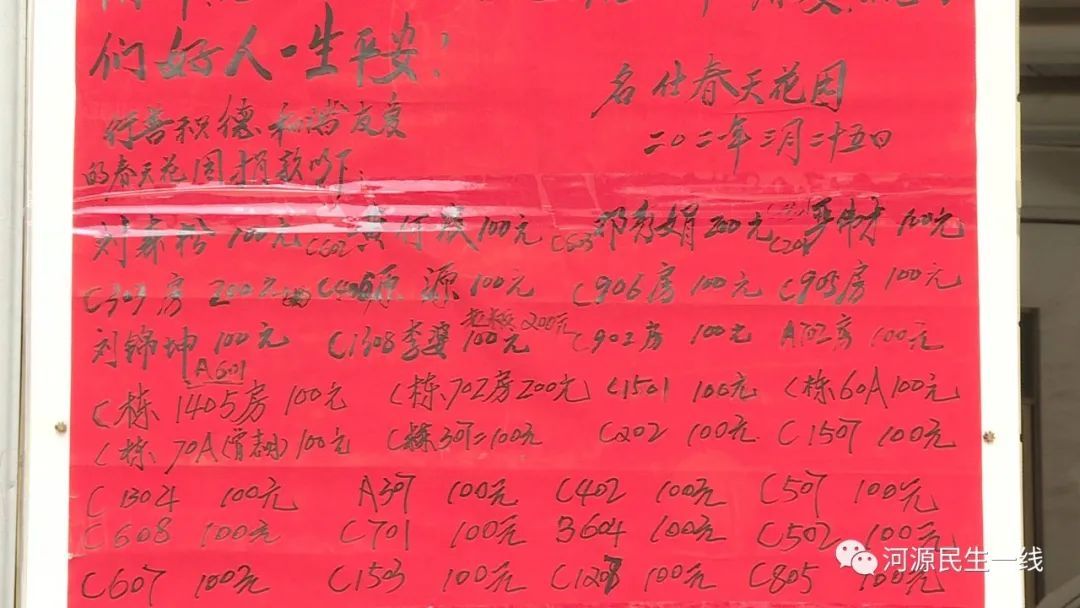 们好人一生平安!
名仕春天花园
行善积德 和谐友爱
二〇二一年三月二十五日
的春天花园捐款如下:
100元 C602 黄 100元 C603 邓秀娟 200元 严伟才 100元
C307房 200元 源 100元 C906房 100元 C905房 100元
200元
刘锦坤 100元 C1308李 100元 C902房 100元 A702房 100元
A601
C栋 1405房 100元 C栋 702房 200元 C1501 100元 C栋 60A 100元
C栋 70A 100元 C栋 307 = 100元 C202 100元 C1507 100元
C1304 100元 A307 100元 C402 100元 C507 100元
C608 100元 C701 100元 B604 100元 C502 100元
C607 100元 C1503 100元 100元 C805 100元
河源民生一线